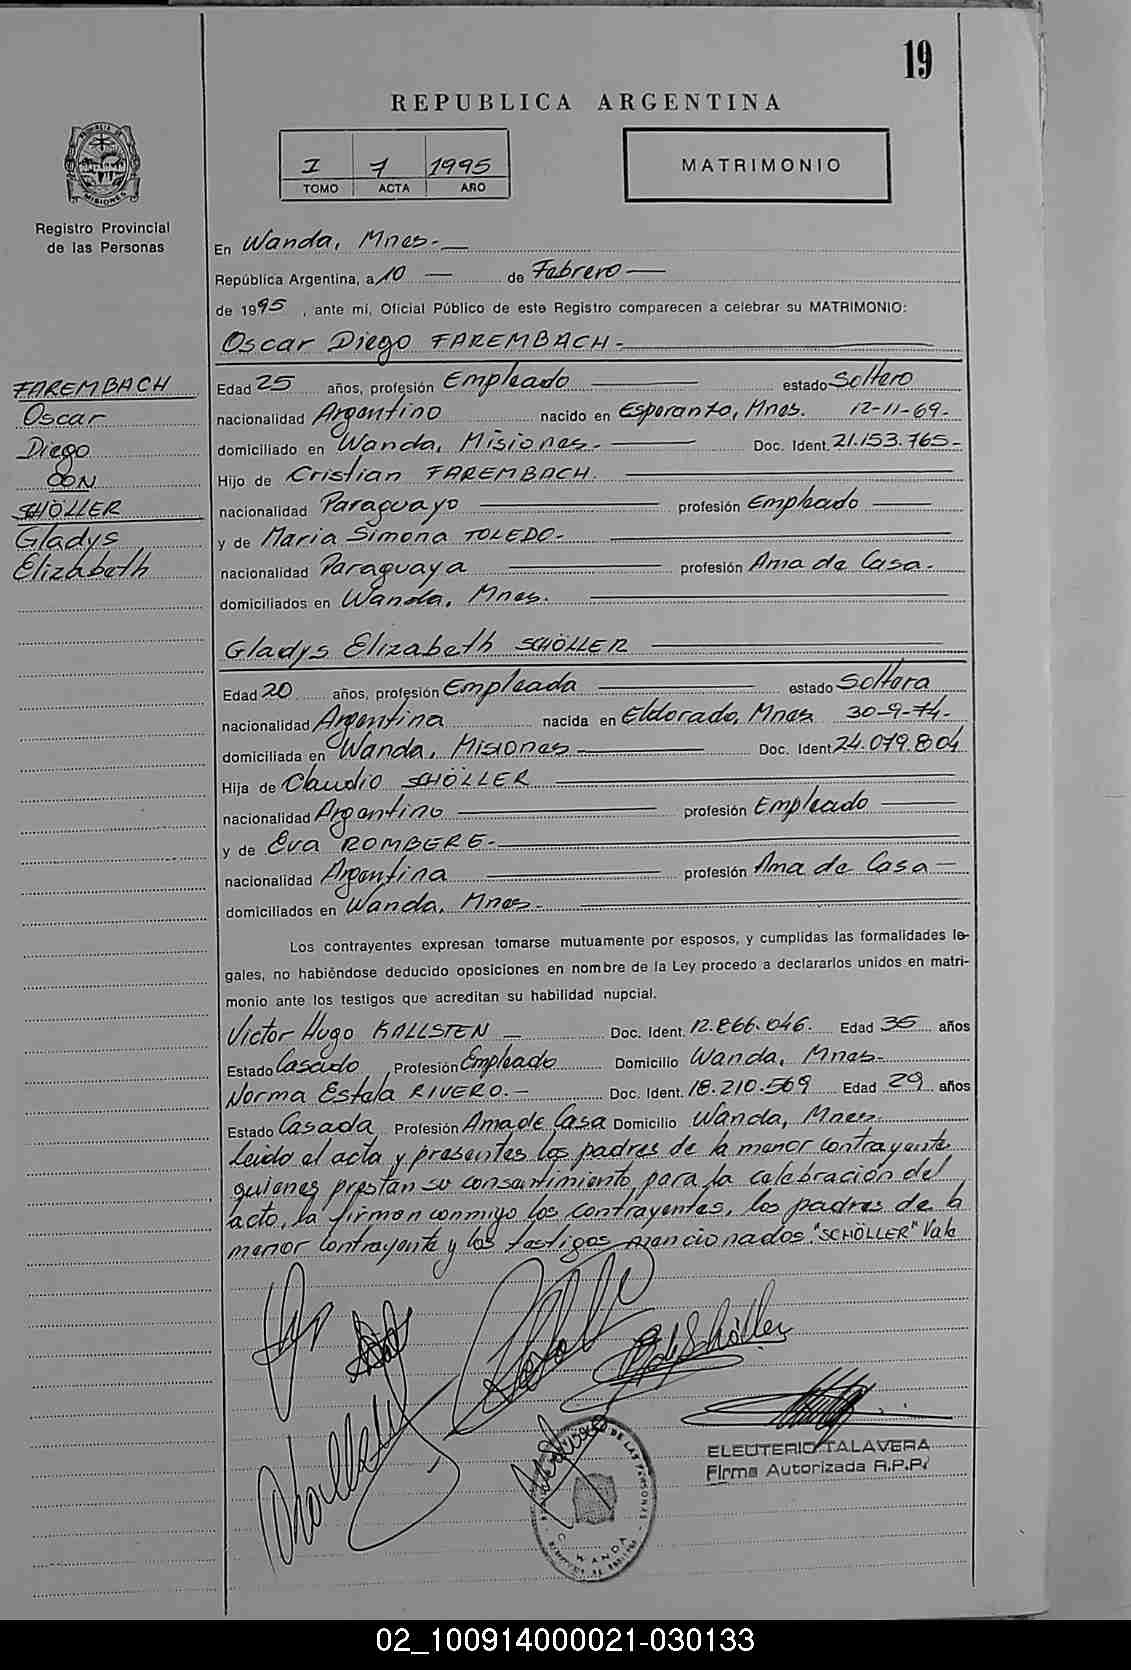 19
REPUBLICA ARGENTINA
I 7 1995
TOMO ACTA AÑO
MATRIMONIO
PROVINCIA DE MISIONES
Registro Provincial
de las Personas
En Wanda, Mnes.-
República Argentina, a 10 de Febrero
de 1995, ante mí, Oficial Público de este Registro comparecen a celebrar su MATRIMONIO:
Oscar Diego FAREMBACH.-
FAREMBACH
Oscar
Diego
CON
SCHÖLLER
Gladys
Elizabeth
Edad 25 años, profesión Empleado estado Soltero
nacionalidad Argentino nacido en Esperanza, Mnes. 12-11-69.-
domiciliado en Wanda, Misiones.- Doc. Ident. 21.153.765.-
Hijo de Cristian FAREMBACH.
nacionalidad Paraguayo profesión Empleado
y de Maria Simona TOLEDO.-
nacionalidad Paraguaya profesión Ama de Casa.-
domiciliados en Wanda, Mnes.
Gladys Elizabeth SCHÖLLER
Edad 20 años, profesión Empleada estado Soltera
nacionalidad Argentina nacida en Eldorado, Mnes 30-9-74.-
domiciliada en Wanda, Misiones Doc. Ident 24.079.804
Hija de Claudio SCHÖLLER
nacionalidad Argentino profesión Empleado
y de Eva ROMBERG.-
nacionalidad Argentina profesión Ama de Casa
domiciliados en Wanda, Mnes.-
Los contrayentes expresan tomarse mutuamente por esposos, y cumplidas las formalidades le-
gales, no habiéndose deducido oposiciones en nombre de la Ley procedo a declararlos unidos en matri-
monio ante los testigos que acreditan su habilidad nupcial.
Victor Hugo KALLSTEN Doc. Ident. 12.866.046. Edad 36 años
Estado Casado Profesión Empleado Domicilio Wanda, Mnes.-
Norma Estela RIVERO.- Doc. Ident. 18.210.569 Edad 29 años
Estado Casada Profesión Ama de Casa Domicilio Wanda, Mnes.
Leido el acta y presentes los padres de la menor contrayente
quienes prestan su consentimiento para la celebración del
acto, la firman conmigo los contrayentes, los padres de la
menor contrayente y los testigos mencionados. "SCHÖLLER" Vale
Schöller
ELEUTERIO TALAVERA
Firma Autorizada R.P.P.
DE LAS PERSONAS
WANDA
02_100914000021-030133